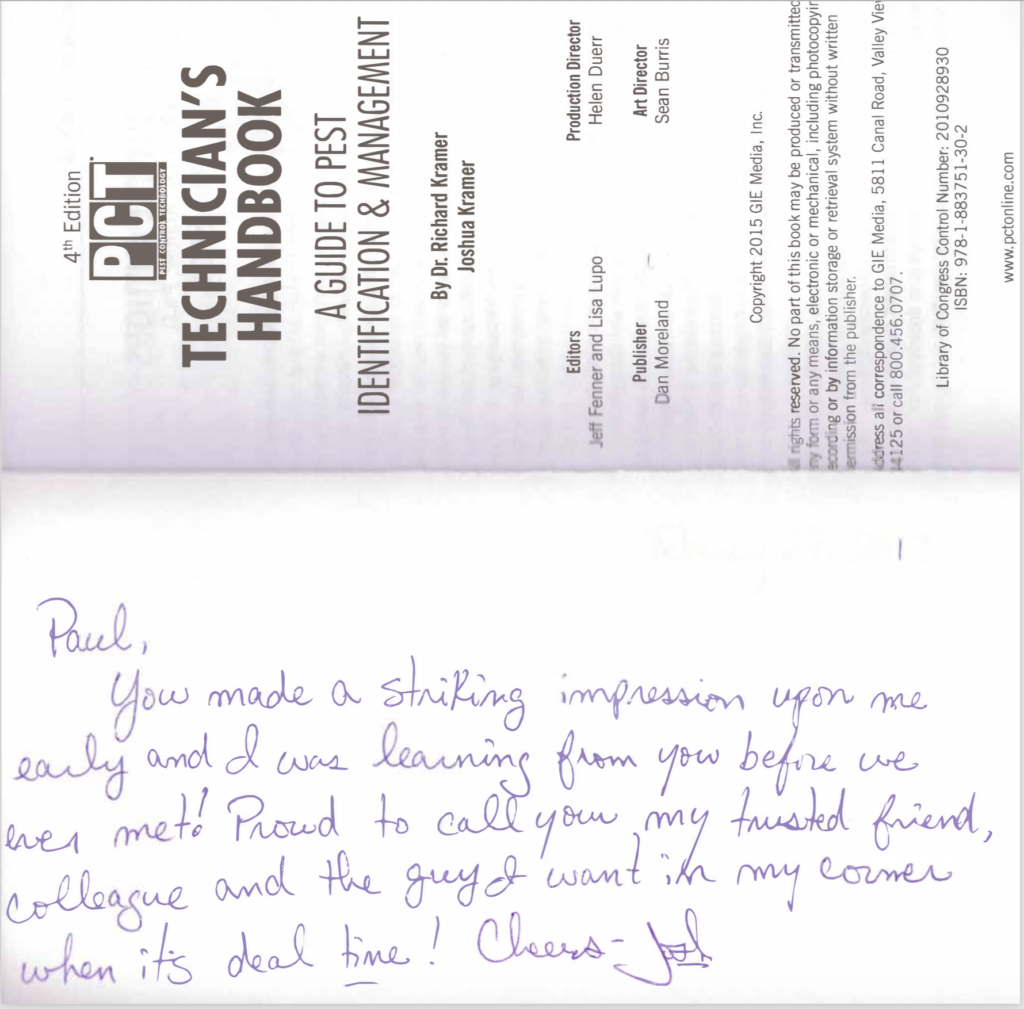 4th Edition
PCT
PEST CONTROL TECHNOLOGY
TECHNICIAN'S
HANDBOOK
A GUIDE TO PEST
IDENTIFICATION & MANAGEMENT
By Dr. Richard Kramer
Joshua Kramer
Editors
Jeff Fenner and Lisa Lupo
Production Director
Helen Duerr
Publisher
Dan Moreland
Art Director
Sean Burris
Copyright 2015 GIE Media, Inc.
rights reserved. No part of this book may be produced or transmitted
form or any means, electronic or mechanical, including photocopyin
ecording or by information storage or retrieval system without written
ermission from the publisher.
ddress all correspondence to GIE Media, 5811 Canal Road, Valley View
4125 or call 800.456.0707.
Library of Congress Control Number: 2010928930
ISBN: 978-1-883751-30-2
www.pctonline.com
Paul,
You made a striking impression upon me
early and I was learning from you before we
ever met! Proud to call you my trusted friend,
colleague and the guy I want in my corner
when it's deal time! Cheers- Josh